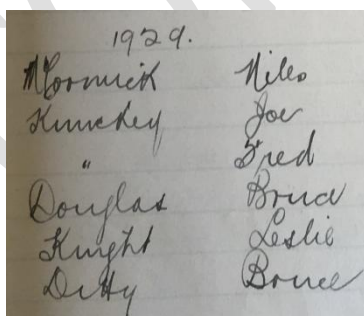 1929.
McCormick Niles
Kimckey Joe
" Fred
Douglas Bruce
Knight Leslie
Ditty Bruce